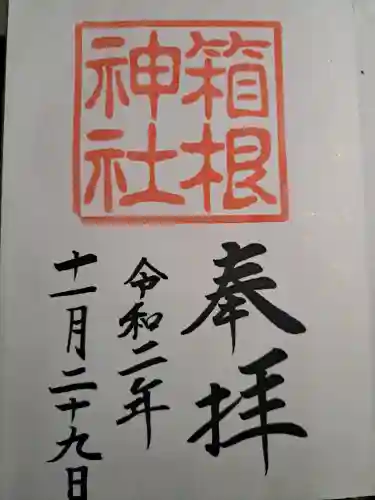 箱根
神社
奉拝
令和二年
十一月二十九日